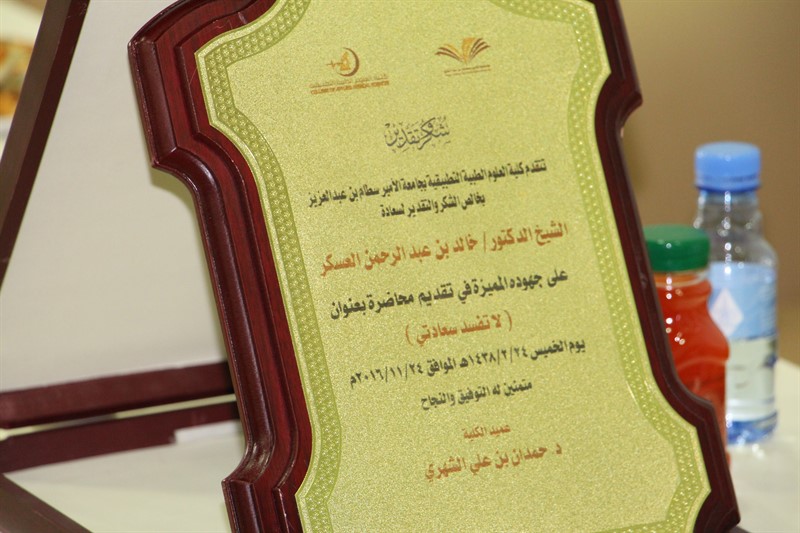 COLLEGE OF APPLIED MEDICAL SCIENCES
شكر وتقدير
تتقدم كلية العلوم الطبية التطبيقية بجامعة الأمير سطام بن عبد العزيز
بخالص الشكر والتقدير لسعادة
الشيخ الدكتور / خالد بن عبد الرحمن العسكر
على جهوده المميزة في تقديم محاضرة بعنوان
( لا تفسد سعادتي )
يوم الخميس ١٤٣٨/٢/٢٤هـ الموافق ٢٠١٦/١١/٢٤م
متمنين له التوفيق والنجاح
عميد الكلية
د. حمدان بن علي الشهري